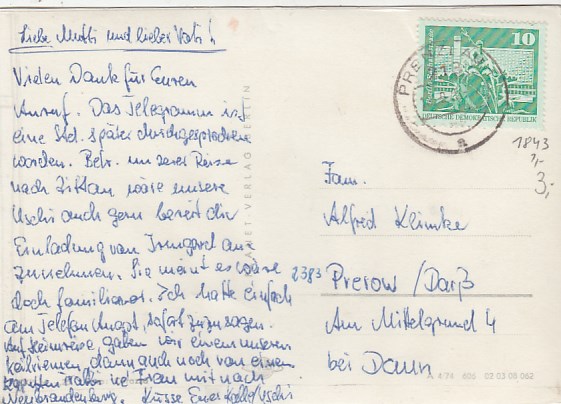 Liebe Mutti und lieber Vati!
Vielen Dank für Euren
Anruf. Das Telegramm ist
eine Std. später durchgesprochen
worden. Betr. unserer Reise
nach Zittau wäre unsere
Uschi auch gern bereit die
Einladung von Irmgard anzu
zunehmen. Sie meint es wäre
doch familiärer. Ich hatte einfach
am Telefon Angst, sofort zuzusagen.
Auf Heimreise gaben wir einem unserem
Keilriemen, dann auch noch von einem
Frau mit nach
Neubrandenburg. Küsse Euer Uschi
PLANET VERLAG BERLIN
10
DEUTSCHE DEMOKRATISCHE REPUBLIK
PRENZLAU
a
1843
3,-
Fam.
Alfred Klimke
2383 Prerow/Darß
Am Mittelgrund 4
bei Dann
A 4/74 606 02 03 08 062